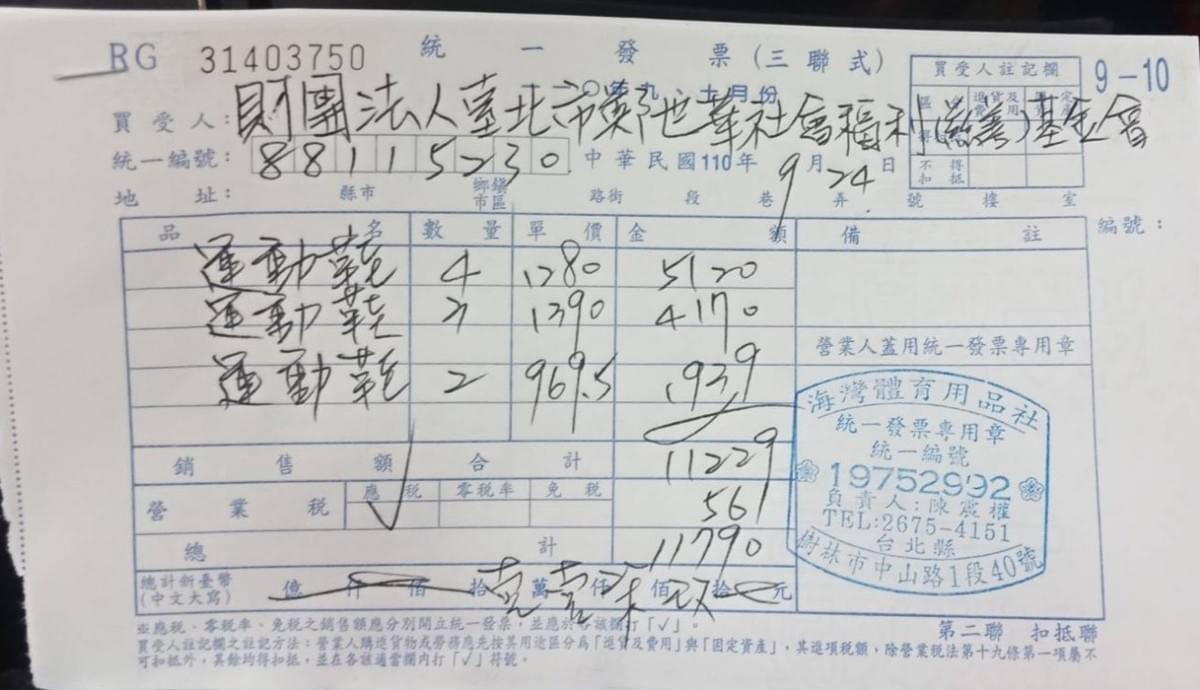 RG 31403750 統一發票(三聯式) 9-10
一一〇年九、十月份
買受人: 財團法人臺北市鄭世華社會福利慈善基金會
買受人註記欄
進貨及費用 固定資產
得扣抵
不得扣抵
統一編號: 88115230 中華民國110年 9月 24日
地址: 縣市 鄉鎮市區 路街 段 巷 弄 號 樓 室
品名 數量 單價 金額 備註 編號:
運動鞋 4 1280 5120
運動鞋 3 1390 4170
營業人蓋用統一發票專用章
運動鞋 2 969.5 1939
銷售額合計 11229
營業稅 應稅 ✓ 零稅率 免稅 561
總計 11790
總計新臺幣(中文大寫) 億 仟 佰 拾 壹 萬 壹 仟 柒 佰 玖 拾 元
海灣體育用品社
統一發票專用章
統一編號
19752992
負責人:陳震權
TEL:2675-4151
台北縣
樹林市中山路1段40號
※應稅、零稅率、免稅之銷售額應分別開立統一發票,並應於各該欄打「✓」。
第二聯 扣抵聯
買受人註記欄之註記方法:營業人購進貨物或勞務應先按其用途區分為「進貨及費用」與「固定資產」,其進項稅額,除營業稅法第十九條第一項屬不
可扣抵外,其餘均得扣抵,並在各該適當欄內打「✓」符號。